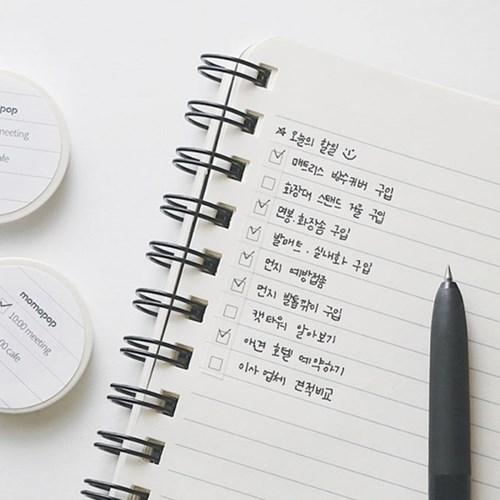 pop
meeting
cafe
momapop
10:00 meeting
:00 cafe
☆ 오늘의 할일
매트리스 방수커버 구입
화장대 스탠드 거울 구입
면봉. 화장솜 구입
발매트. 실내화 구입
먼지 예방접종
먼지 발톱깎이 구입
캣타워 알아보기
애견 호텔 예약하기
이사 업체 견적비교